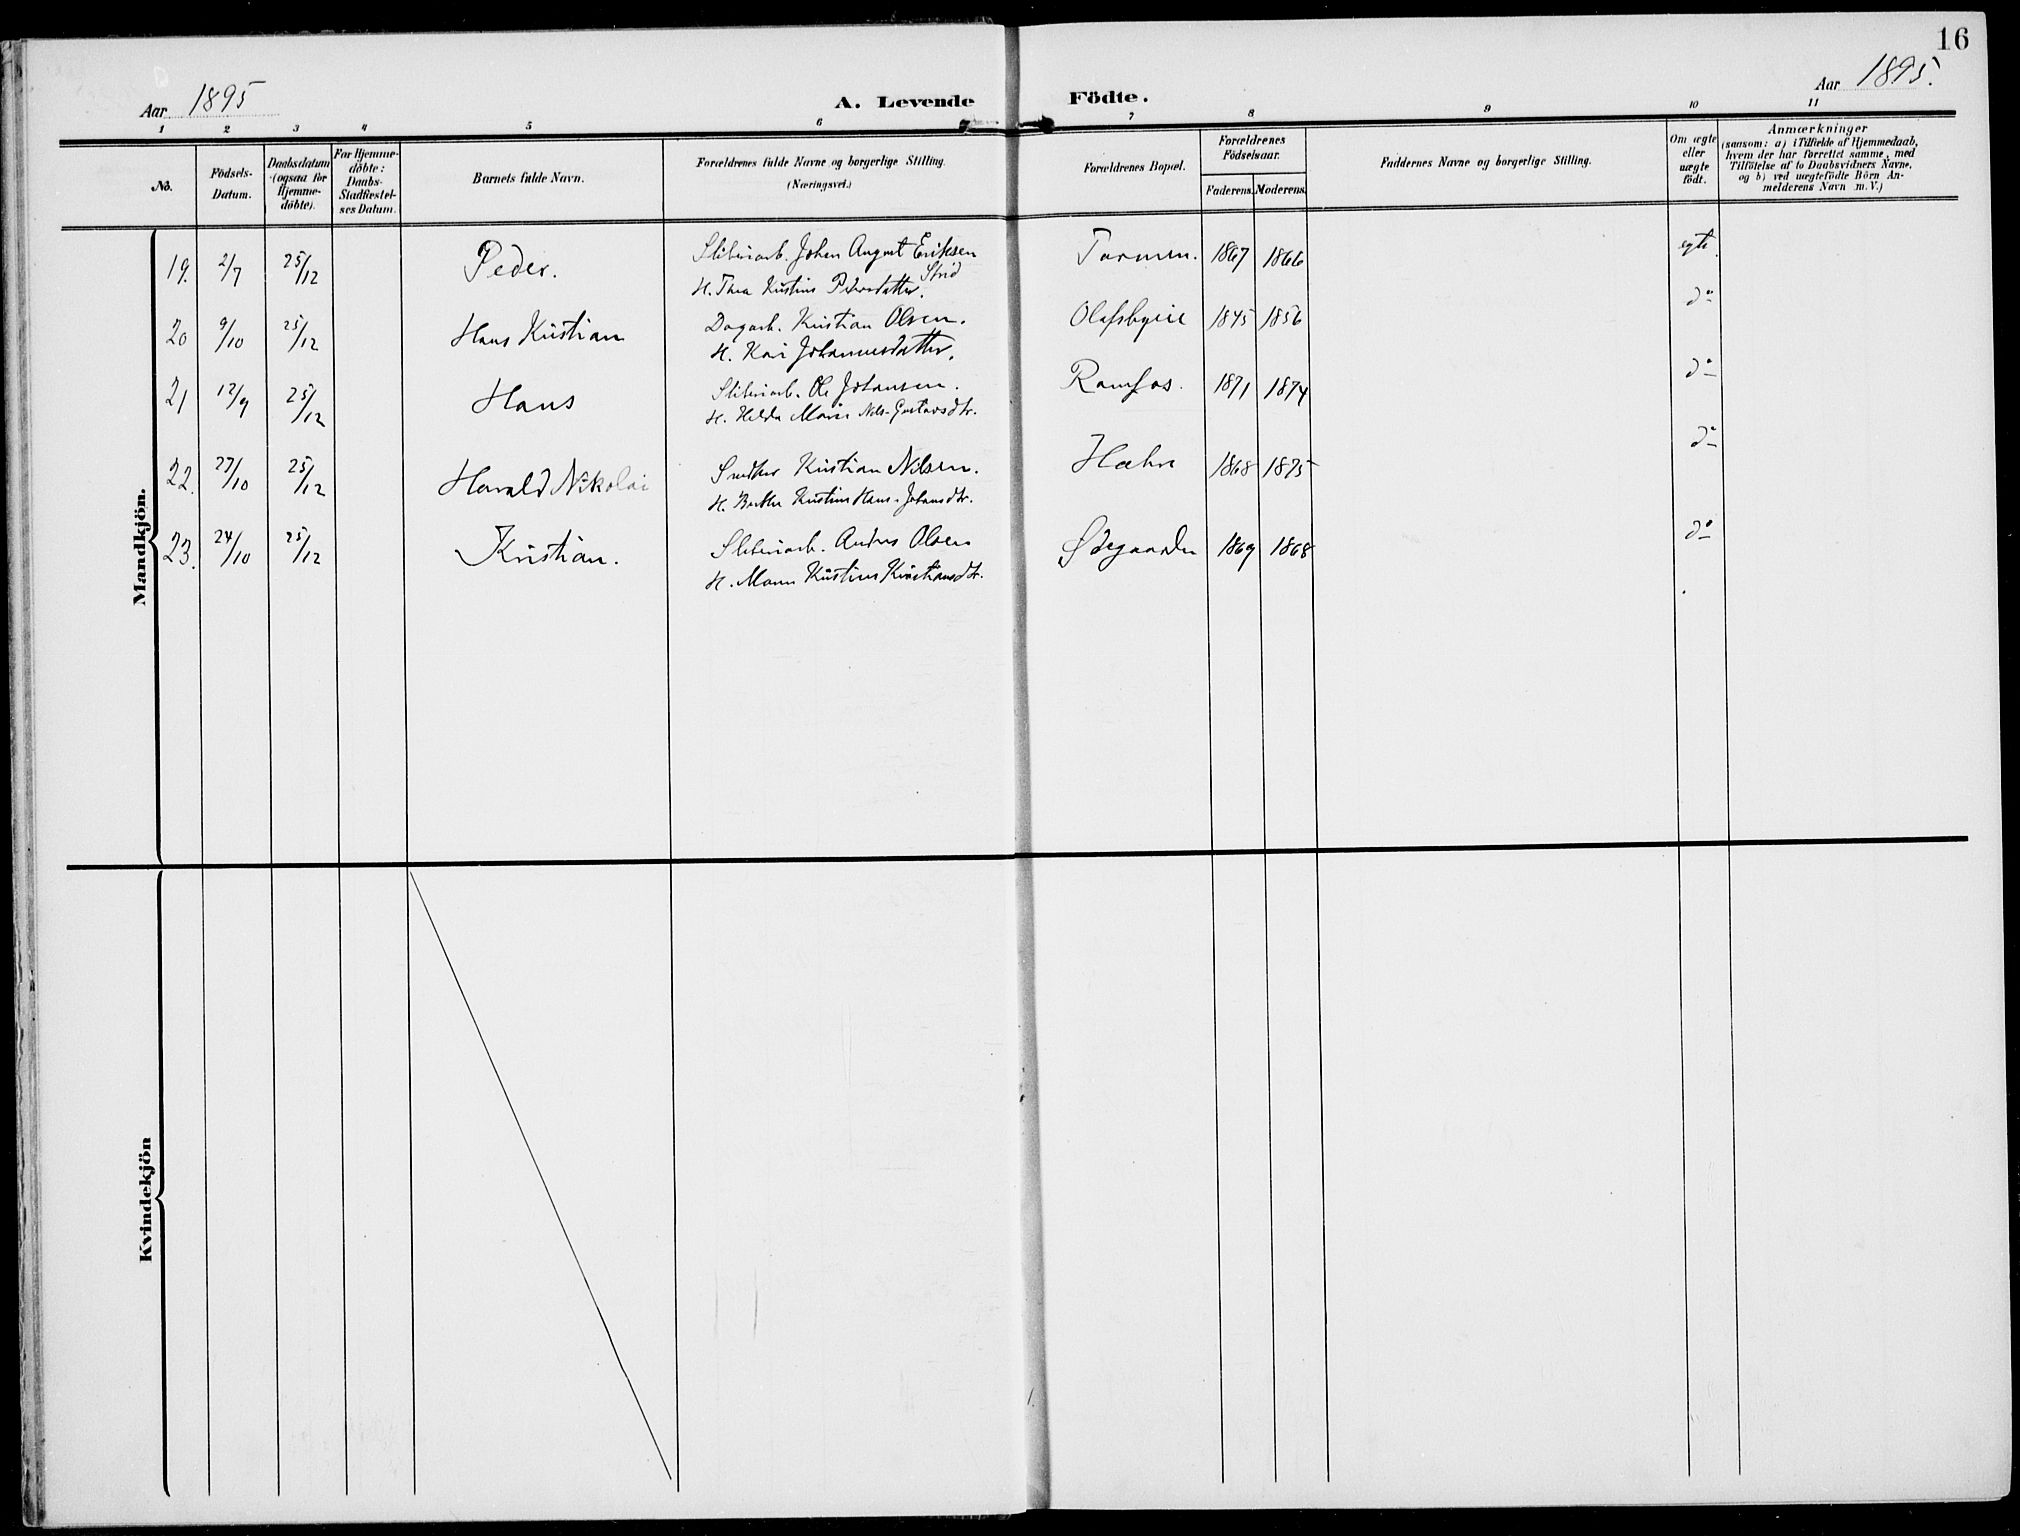 16
Aar 1895
A. Levende Födte.
Aar 1895.
1 2 3 4 5 6 7 8 9 10 11
No.
Födsels-
Datum.
Daabsdatum
(ogsaa for
Hjemme-
döbte).
For Hjemme-
döbte:
Daabs-
Stadfæstel-
ses Datum.
Barnets fulde Navn.
Forældrenes fulde Navne og borgerlige Stilling.
(Næringsvei.)
Forældrenes Bopæl.
Forældrenes
Födselsaar.
Faderens. Moderens.
Faddernes Navne og borgerlige Stilling.
Om ægte
eller
uægte
födt.
Anmærkninger
(saasom: a) i Tilfælde af Hjemmedaab,
hvem der har forrettet samme, med
Tilföielse af to Daabsvidners Navne,
og b) ved uægtefödte Börn An-
melderens Navn m. V.)
Mandkjön.
19. 2/7 25/12 Peder. Sliberiarb. Johan August Eriksen Tormen. 1867 1866 egte.
Strid
H. Thea Kristine Pedersdatter.
20 9/10 25/12 Hans Kristian Dagarb. Kristian Olsen. Olafsbyeie 1845 1856 do
H. Kari Johannesdatter.
21 12/9 25/12 Hans Sliberiarb. Ole Johansen. Ramfos. 1871 1874 do
H. Hilda Marie Nils-Gustavsdtr.
22. 27/10 25/12 Harald Nikolai Kristian Nilsen. Hæhre 1868 1875 do
H. Berthe Kristine Hans-Johansdtr.
23. 24/10 25/12 Kristian. Sliberiarb. Andres Olsen Ødegaarden 1869 1868 do
H. Maren Kristine Kristiansdtr.
Kvindekjön